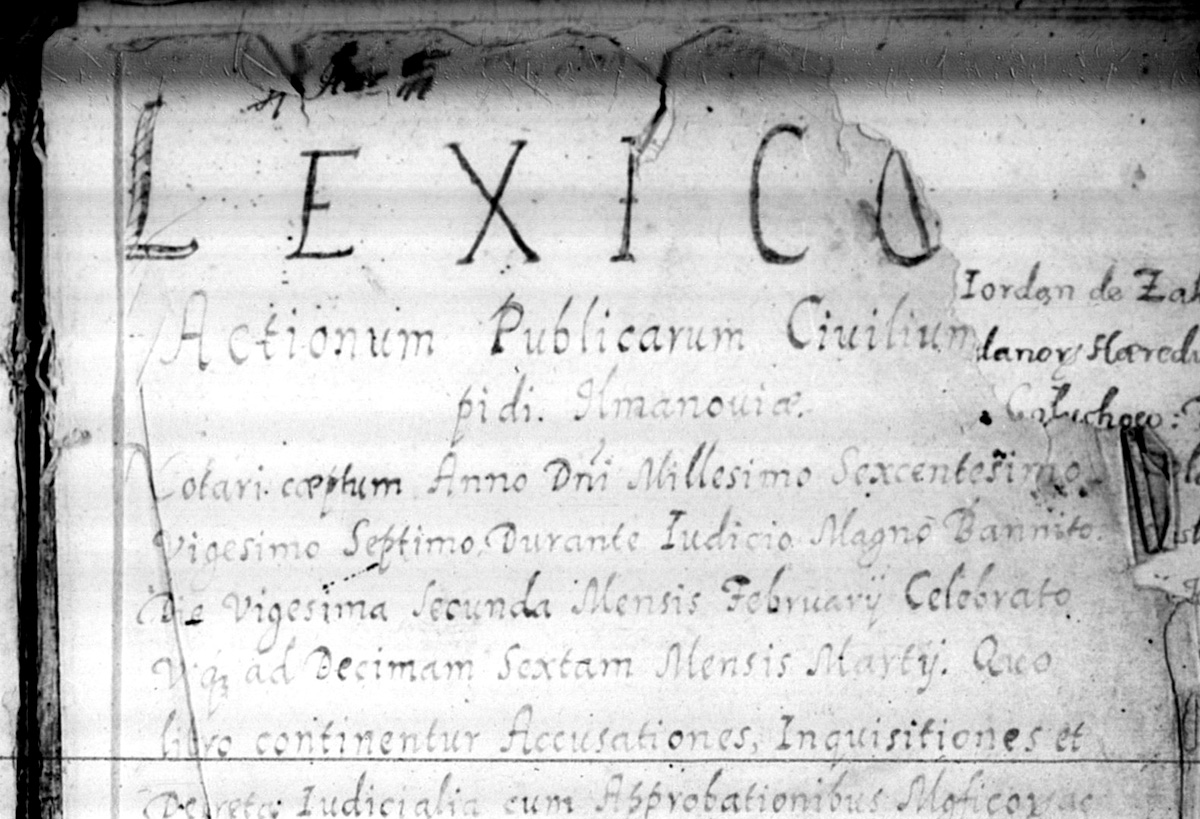 LEXICO
Iordan de Za
Actionum Publicarum Civilium
pidi. Ilmanoviæ.
Notari cœptum Anno Dni Millesimo Sexcentesimo
Vigesimo Septimo, Durante Iudicio Magno Bannito.
Die Vigesima Secunda Mensis Februarÿ Celebrato
Vsq; ad Decimam Sextam Mensis Martÿ. Quo
libro continentur Accusationes, Inquisitiones et
Decreta Iudicialia cum Approbationibus